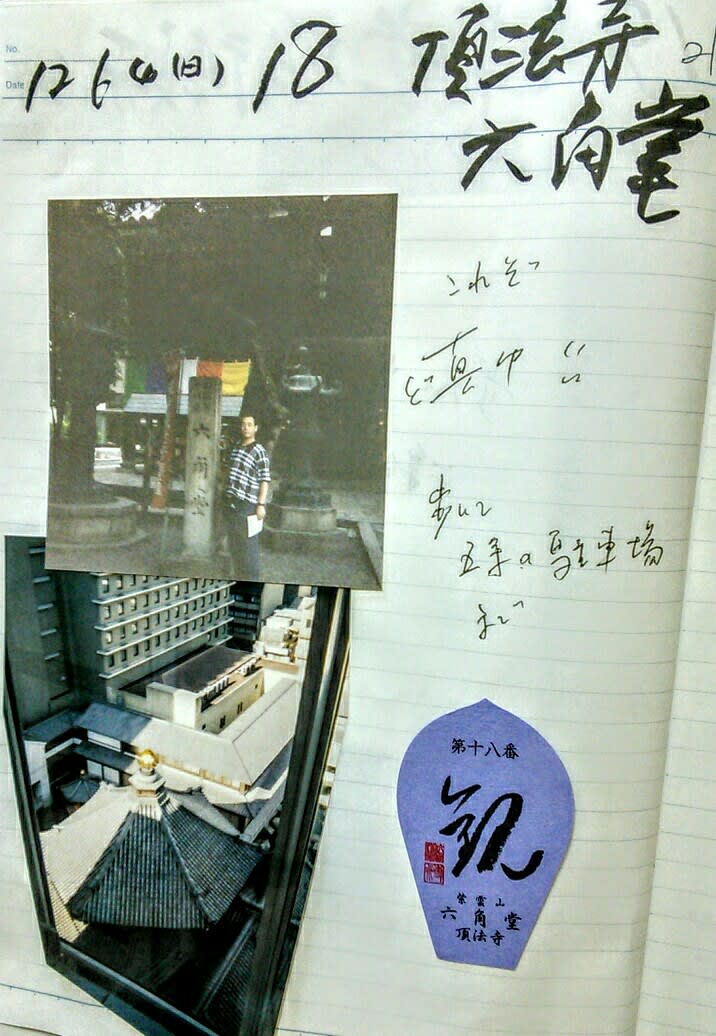 No.
Date 12 6 4 (日) 18 頂法寺 21
六角堂
これぞ
ど真中!!
歩いて
五条の駐車場
まで
六角堂
第十八番
観
紫雲山
六角堂
頂法寺